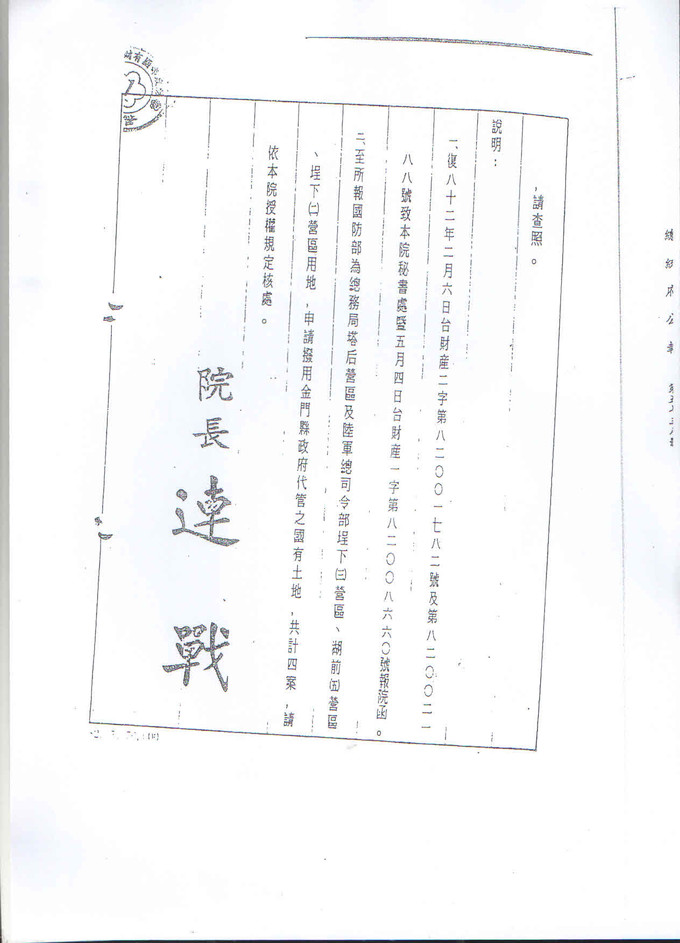 ，請查照。
說明：
一、復八十二年二月六日台財産二字第八二００一七八二號及第八二００二一
八八號致本院秘書處暨五月四日台財産一字第八二００八六六０號報院函。
二、至所報國防部為總務局塔后營區及陸軍總司令部埕下㈢營區、湖前㈤營區
、埕下㈡營區用地，申請撥用金門縣政府代管之國有土地，共計四案，請
依本院授權規定核處。
院長 連 戰